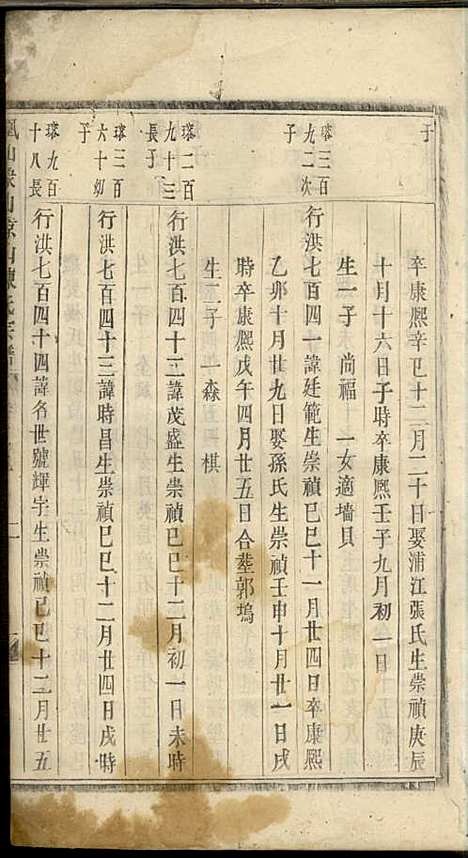 子
卒康熙辛巳十二月二十日娶浦江張氏生崇禎庚辰
十月十六日子時卒康熙壬子九月初一日
生一子 尚福 一女適墻貝
璿三百
九二次
子
行洪七百四一諱廷範生崇禎己巳十一月廿四日卒康熙
乙卯十月廿九日娶孫氏生崇禎壬申十月廿一日戌
時卒康熙戊午四月廿五日合塟郭塢
生二子 一森 棋
璿二百
九十三
長子
行洪七百四十二諱茂盛生崇禎己巳十二月初一日未時
璿三百
六十幼
子
行洪七百四十三諱時昌生崇禎己巳十二月廿四日戌時
璿九百
十八長
行洪七百四十四諱名世號輝宇生崇禎己巳十二月廿五